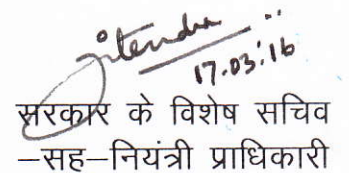 jitendra
17.03.16
सरकार के विशेष सचिव
–सह–नियंत्री प्राधिकारी